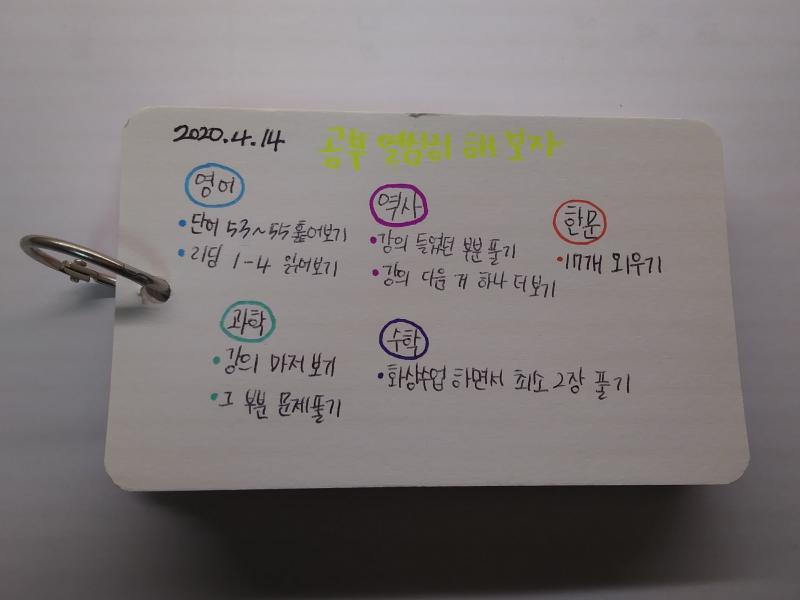 2020.4.14 공부 열심히 해 보자
영어
• 단어 53~55 훑어보기
• 리딩 1-4 읽어보기
역사
• 강의 들었던 부분 풀기
• 강의 다음 거 하나 더 보기
한문
• 17개 외우기
과학
• 강의 마저 보기
• 그 부분 문제풀기
수학
• 화상수업 하면서 최소 2장 풀기